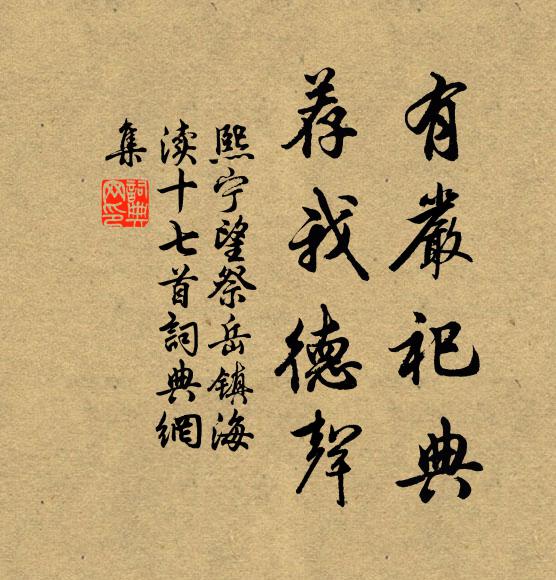 有嚴祀典
荐我德聲
熙宁望祭岳镇海
渎十七首詞典網
集
詞典
网印